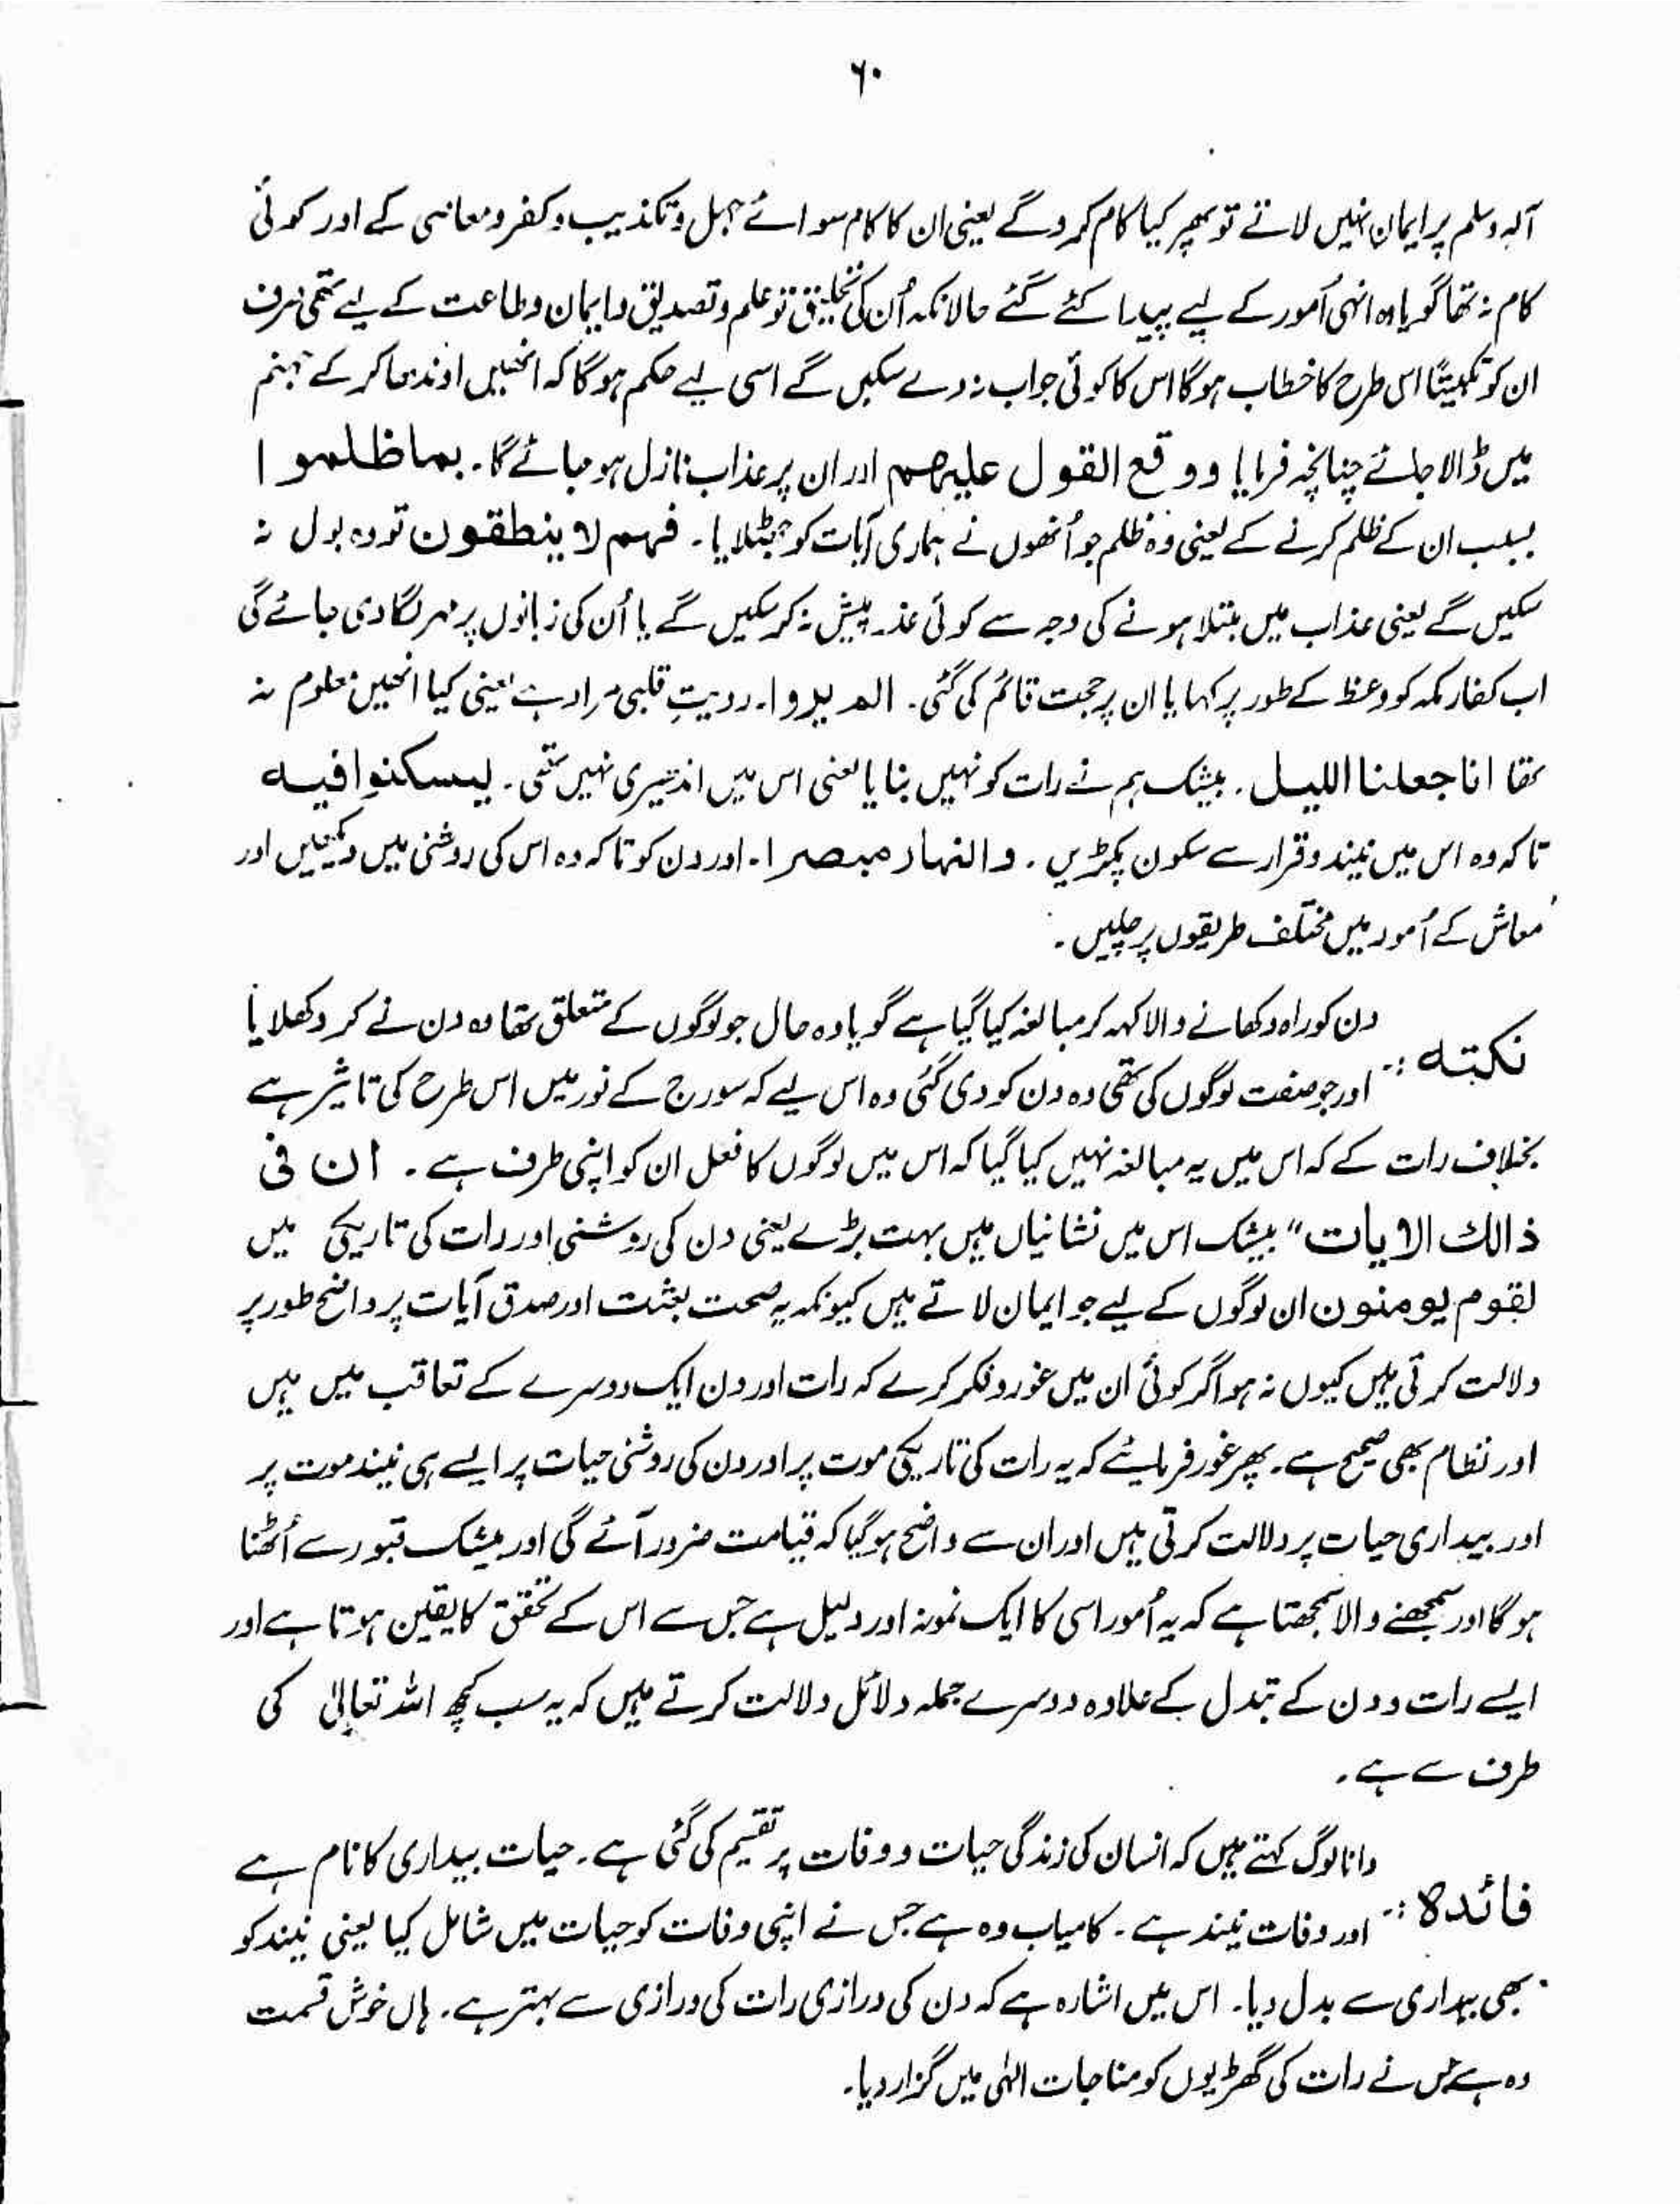 ۶۰
آلہ وسلم پر ایمان نہیں لاتے تو پھر کیا کام کرو گے یعنی ان کا کام سوائے جہل و تکذیب و کفر و معاصی کے اور کوئی
کام نہ تھا گویا وہ انہی اُمور کے لیے پیدا کئے گئے حالانکہ اُن کی تخلیق تو علم و تصدیق و ایمان و طاعت کے لیے تھی صرف
ان کو تبکیتًا اس طرح کا خطاب ہوگا اس کا کوئی جواب نہ دے سکیں گے اسی لیے حکم ہوگا کہ انھیں اوندھا کر کے جہنم
میں ڈالا جائے چنانچہ فرمایا ووقع القول علیہم اور ان پر عذاب نازل ہو جائے گا۔ بما ظلموا
بسبب ان کے ظلم کرنے کے یعنی وہ ظلم جو اُنھوں نے ہماری آیات کو جھٹلایا۔ فہم لا ینطقون تو وہ بول نہ
سکیں گے یعنی عذاب میں مبتلا ہونے کی وجہ سے کوئی عذر پیش نہ کر سکیں گے یا اُن کی زبانوں پر مہر لگا دی جائے گی
اب کفار مکہ کو وعظ کے طور پر کہا یا ان پر حجت قائم کی گئی۔ الم یروا۔ رویتِ قلبی مراد ہے یعنی کیا انھیں معلوم نہ
تھا انا جعلنا اللیل۔ بیشک ہم نے رات کو نہیں بنایا یعنی اس میں اندھیری نہیں تھی۔ لیسکنوا فیہ
تاکہ وہ اس میں نیند و قرار سے سکون پکڑیں۔ والنہار مبصرا۔ اور دن کو تاکہ وہ اس کی روشنی میں دیکھیں اور
معاش کے اُمور میں مختلف طریقوں پر چلیں۔
دن کو راہ دکھانے والا کہہ کر مبالغہ کیا گیا ہے گویا وہ حال جو لوگوں کے متعلق تھا وہ دن نے کر دکھلایا
نکتہ :۔ اور جو صفت لوگوں کی تھی وہ دن کو دی گئی وہ اس لیے کہ سورج کے نور میں اس طرح کی تاثیر ہے
بخلاف رات کے کہ اس میں یہ مبالغہ نہیں کیا گیا کہ اس میں لوگوں کا فعل ان کو اپنی طرف ہے۔ ان فی
ذالک الایات" بیشک اس میں نشانیاں ہیں بہت بڑے یعنی دن کی روشنی اور رات کی تاریکی میں
لقوم یومنون ان لوگوں کے لیے جو ایمان لاتے ہیں کیونکہ یہ صحت بعثت اور صدق آیات پر واضح طور پر
دلالت کرتی ہیں کیوں نہ ہو اگر کوئی ان میں غور و فکر کرے کہ رات اور دن ایک دوسرے کے تعاقب میں ہیں
اور نظام بھی صحیح ہے۔ پھر غور فرمایئے کہ یہ رات کی تاریکی موت پر اور دن کی روشنی حیات پر ایسے ہی نیند موت پر
اور بیداری حیات پر دلالت کرتی ہیں اور ان سے واضح ہو گیا کہ قیامت ضرور آئے گی اور بیشک قبور سے اُٹھنا
ہوگا اور سمجھنے والا سمجھتا ہے کہ یہ اُمور اسی کا ایک نمونہ اور دلیل ہے جس سے اس کے تحقق کا یقین ہوتا ہے اور
ایسے رات و دن کے تبدل کے علاوہ دوسرے جملہ دلائل دلالت کرتے ہیں کہ یہ سب کچھ اللہ تعالیٰ کی
طرف سے ہے۔
دانا لوگ کہتے ہیں کہ انسان کی زندگی حیات و وفات پر تقسیم کی گئی ہے۔ حیات بیداری کا نام ہے
فائدہ :۔ اور وفات نیند ہے۔ کامیاب وہ ہے جس نے اپنی وفات کو حیات میں شامل کیا یعنی نیند کو
بھی بیداری سے بدل دیا۔ اس میں اشارہ ہے کہ دن کی درازی رات کی درازی سے بہتر ہے۔ ہاں خوش قسمت
وہ ہے جس نے رات کی گھڑیوں کو مناجات الٰہی میں گزار دیا۔